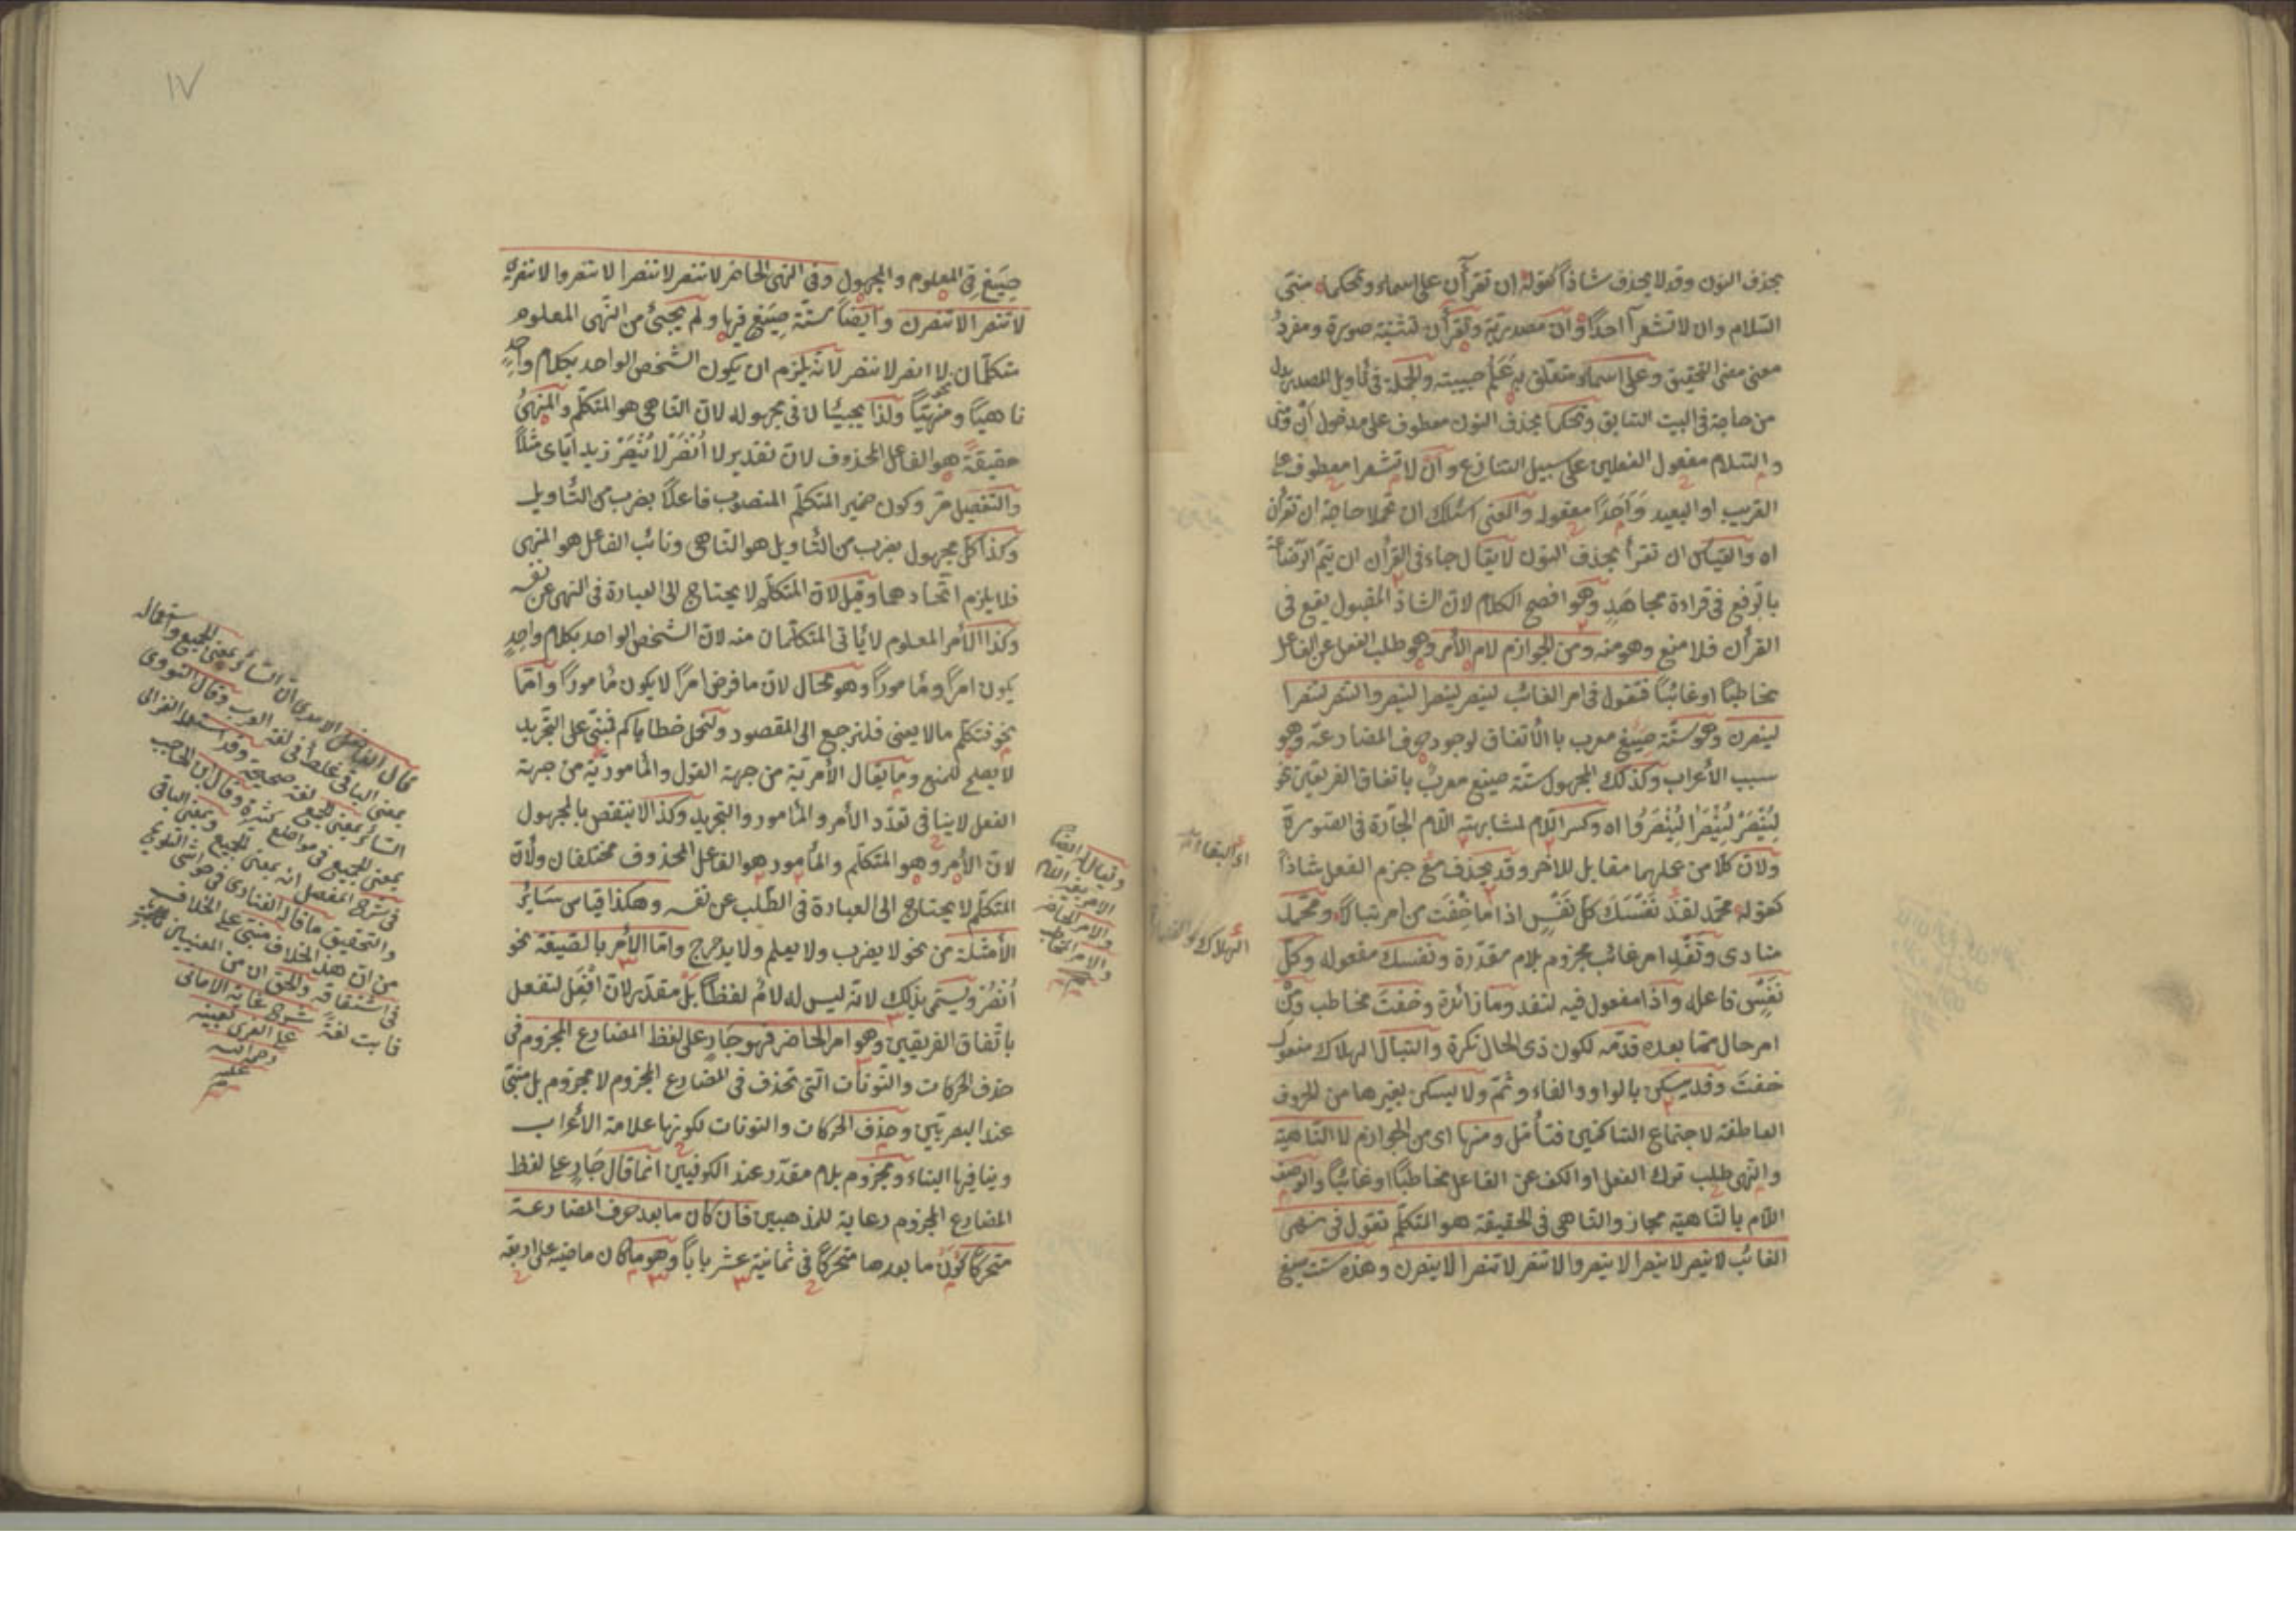 بحذف النون وقد لا يحذف شاذا كقوله ان تقرأن على اسماء ويحكما منى
السلام وان لا تشعرا احدا وان مصدرية وتقرأن تثنية صورة ومفرد
معنى التحقيق وعلى اسماء متعلق به علم حبيبته والجملة فى تأويل المصدر بدل
من حاجة فى البيت السابق ويحكما بحذف النون معطوف على مدخول ان ومنى
والسلام مفعول الفعلين على سبيل التنازع وان لا تشعرا معطوف على
القريب او البعيد واحدا مفعوله والمعنى اسئلك ان تحملا حاجة ان تقرأن
اه والقياس ان تقرأ بحذف النون لا يقال جاء فى القرأن ان يتم الرضاعة
بالرفع فى قراءة مجاهد وهو افصح الكلام لان الشاذ المقبول يقع فى
القرأن فلا منع وهو منه ومن الجوازم لام الأمر وهو طلب الفعل عن الفاعل
مخاطبا او غائبا فتقول فى امر الغائب لينصر لينصرا لينصروا لتنصر لتنصرا
لينصرن وهو ستة صيغ معرب بالأتفاق لوجود حرف المضارعة وهو
سبب الأعراب وكذلك المجهول ستة صيغ معرب باتفاق الفريقين نحو
لينصر لينصرا لينصروا اه وكسر اللام لمشابهته اللام الجارة فى الصورة
ولان كلا من عملهما مقابل للأخر وقد يحذف مع جزم الفعل شاذا
كقوله محمد تفد نفسك كل نفس اذا ما خفت من امر تبالا ومحمد
منادى وتفد امر غائب مجزوم بلام مقدرة ونفسك مفعوله وكل
نفس فاعله واذا مفعول فيه لتفد وما زائدة وخفت مخاطب ومن
امر حال مما بعده قدمه لكون ذى الحال نكرة والتبال الهلاك مفعول
خفت وقد يسكن بالواو والفاء وثم ولا يسكن بغيرها من الحروف
العاطفة لاجتماع الساكنين فتأمل ومنها اى من الجوازم لا الناهية
والنهى طلب ترك الفعل او الكف عن الفاعل مخاطبا او غائبا والوصف
اللام بالناهية مجاز والناهى فى الحقيقة هو المتكلم تقول فى نهى
الغائب لا ينصر لا ينصرا لا ينصروا لا تنصر لا تنصرا لا ينصرن وهذه ست صيغ
الهلاك
١٧
صيغ فى المعلوم والمجهول وفى النهى الحاضر لا تنصر لا تنصرا لا تنصروا لا تنصرى
لا تنصرا لا تنصرن وايضا ستة صيغ فيها ولم يجئ من النهى المعلوم
متكلمان نحو لا انصر لا ننصر لأنه يلزم ان يكون الشخص الواحد بكلام واحد
ناهيا ومنهيا ولذا يجيئا لا فى مجهوله لان الناهى هو المتكلم والمنهى
حقيقة هو الفاعل المحذوف لان تقدير لا أنصر لا ينصر زيد اياى مثلا
والتفصيل مر وكون ضمير المتكلم المنصوب فاعلا بضرب من التأويل
وكذا كل مجهول بضرب من التأويل هو الناهى ونائب الفاعل هو المنهى
فلا يلزم اتحادهما وقيل لان المتكلم لا يحتاج الى العبادة فى النهى عن نفسه
وكذا الأمر المعلوم لا يأتى المتكلمان منه لان الشخص الواحد بكلام واحد
يكون امرا ومأمورا وهو محال لان ما فرض امرا لا يكون مأمورا واما
نحو فتكلم ما لا يعنى فلنرجع الى المقصود ولنحمل خطاياكم فبنى على التجريد
لا يصلح للمنع وما يقال الأمرية من جهة القول والمأمورية من جهة
الفعل لا ينافى تعدد الأمر والمأمور والتجريد وكذا لا ينتقض بالمجهول
لان الأمر وهو المتكلم والمأمور هو الفاعل المحذوف مختلفان ولأن
المتكلم لا يحتاج الى العبادة فى الطلب عن نفسه وهكذا قياس سائر
الأمثلة من نحو لا يضرب ولا يعلم ولا يدحرج واما الأمر بالصيغة نحو
أنصر ويسمى بذلك لانه ليس له لام لفظا بل مقدر لان أفعل لتفعل
باتفاق الفريقين وهو امر الحاضر فهو جار على لفظ المضارع المجزوم فى
حذف الحركات والنونات التى تحذف فى المضارع المجزوم لا مجزوم بل مبنى
عند البصريين وحذف الحركات والنونات لكونها علامة الأعراب
وينافيها البناء ومجزوم بلام مقدر عند الكوفيين انما قال جار على لفظ
المضارع المجزوم رعاية للمذهبين فان كان ما بعد حرف المضارعة
متحركا كون ما بعدها متحركا فى ثمانية عشر بابا وهو ما كان ماضيه على اربعة
ويقال له ايضا
الامر بغير اللام
والامر الحاضر
والامر المخاطب
قال الفاضل الامدى ان السائر بمعنى الجميع واستعماله
بمعنى الباقى غلط فى لغة العرب وقال النووى
السائر بمعنى الجميع لغة صحيحة وقد استعملها الغزالى
بمعنى الجميع فى مواضع كثيرة وقال ابن الحاجب
فى شرح المفصل انه بمعنى الجميع وبمعنى الباقى
والتحقيق ما قاله الفنارى فى حواشى التلويح
من ان هذا الخلاف مبنى على الخلاف
فى اشتقاقه والحق ان من المعنيين
ثابت لغة شرح غاية الامانى
على العزى لعينه
رحمة الله
عليه